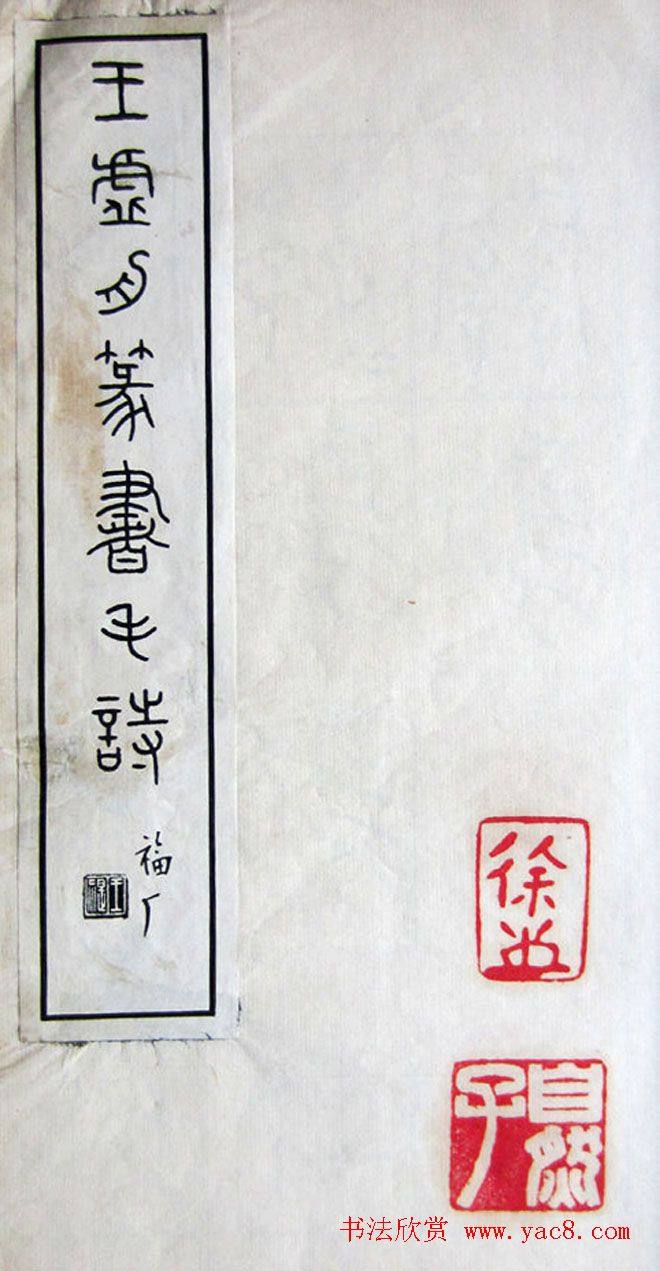 王虛舟篆書毛詩
福厂
王禔
徐
自然子
书法欣赏 www.yac8.com